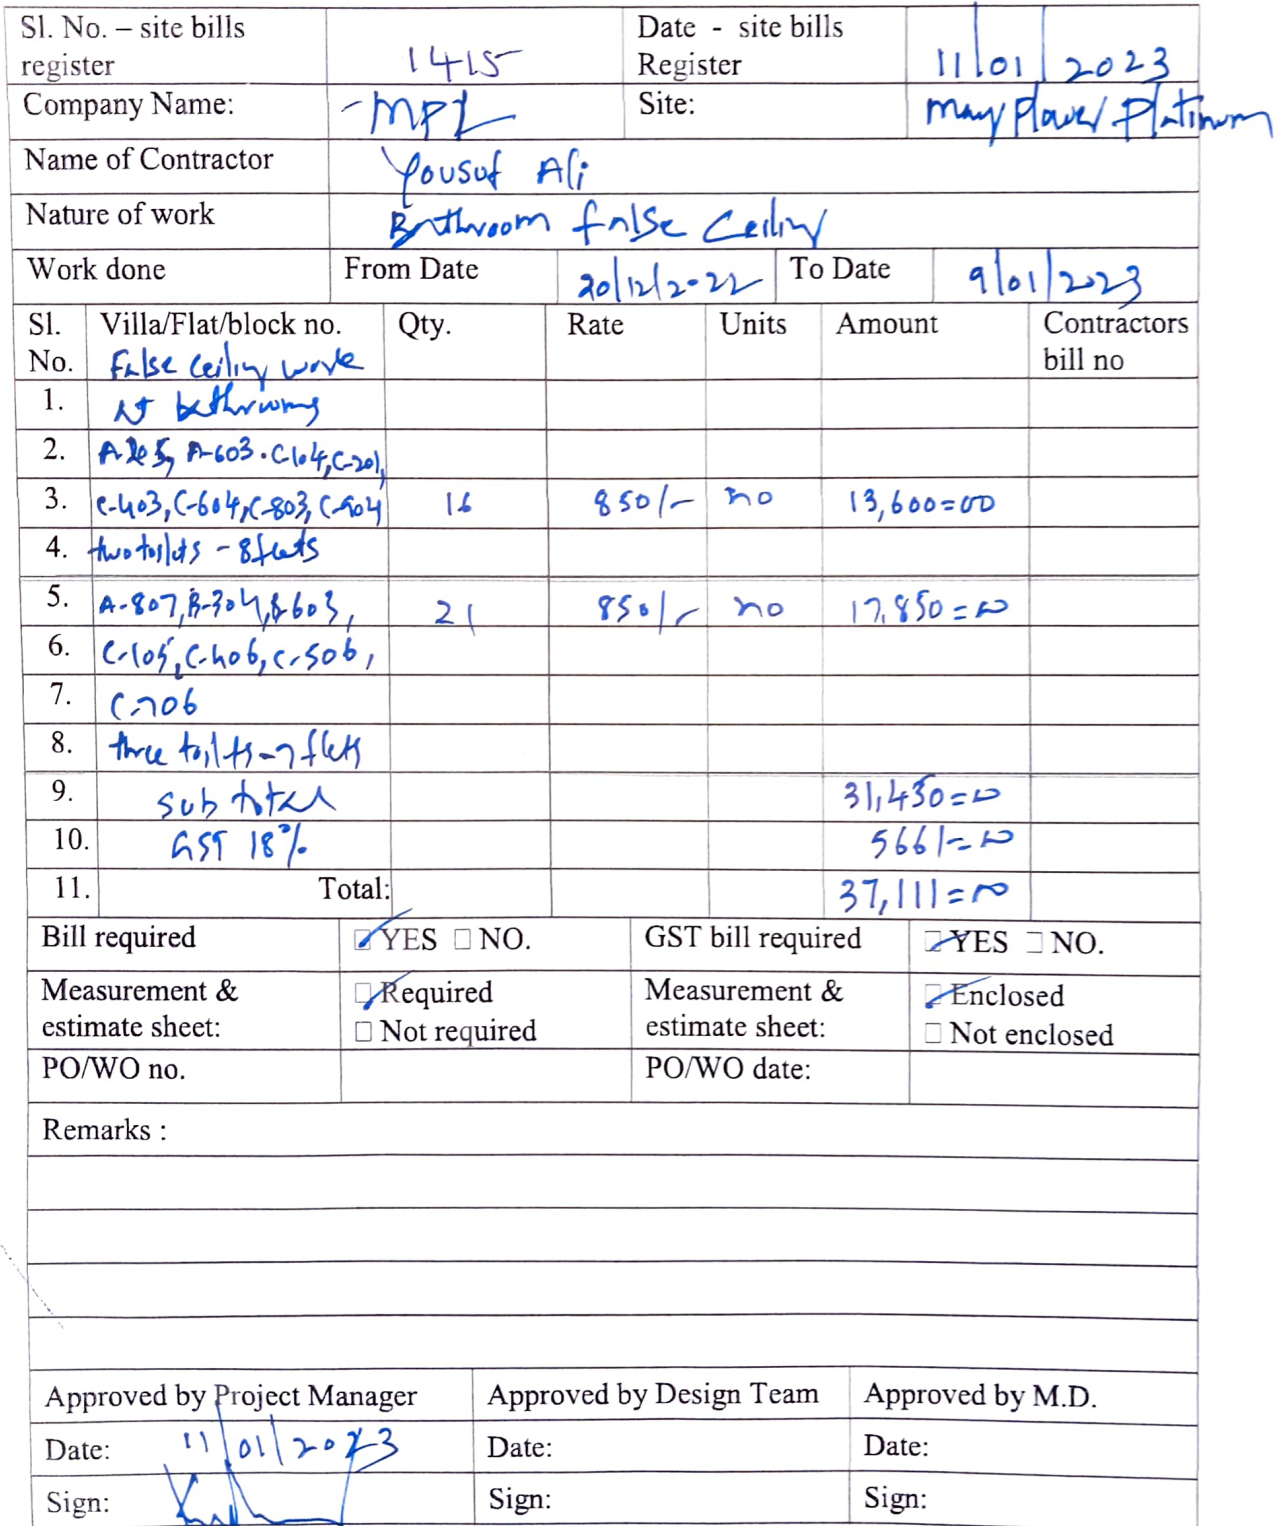 Sl. No. – site bills register 1415 Date - site bills Register 11/01/2023
Company Name: MPL Site: May Flower Platinum
Name of Contractor Yousuf Ali
Nature of work Bathroom false Ceiling
Work done From Date 20/12/2022 To Date 9/01/2023
Sl. No. Villa/Flat/block no. Qty. Rate Units Amount Contractors bill no
False ceiling work
1. At bathrooms
2. A-603, C-104, C-201,
3. C-403, C-604, C-803, C-904 16 850/- no 13,600=00
4. two toilets - 8 flats
5. A-807, B-304, B-603, 21 850/- no 17,850=00
6. C-105, C-406, C-506,
7. C-706
8. three toilts - 7 flets
9. Sub total 31,450=00
10. GST 18% 5661=00
11. Total: 37,111=00
Bill required YES NO. GST bill required YES NO.
Measurement & estimate sheet: Required Not required Measurement & estimate sheet: Enclosed Not enclosed
PO/WO no. PO/WO date:
Remarks :
Approved by Project Manager Approved by Design Team Approved by M.D.
Date: 11/01/2023 Date: Date:
Sign: Sign: Sign: